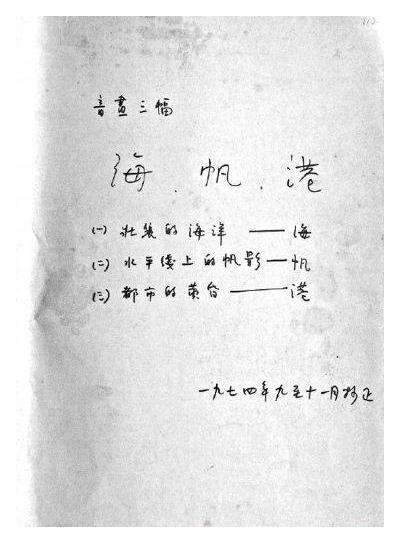 音畫三幅
海．帆．港
(一) 壯美的海洋——海
(二) 水平綫上的帆影——帆
(三) 都市的黃昏——港
一九七四年九至十一月修正